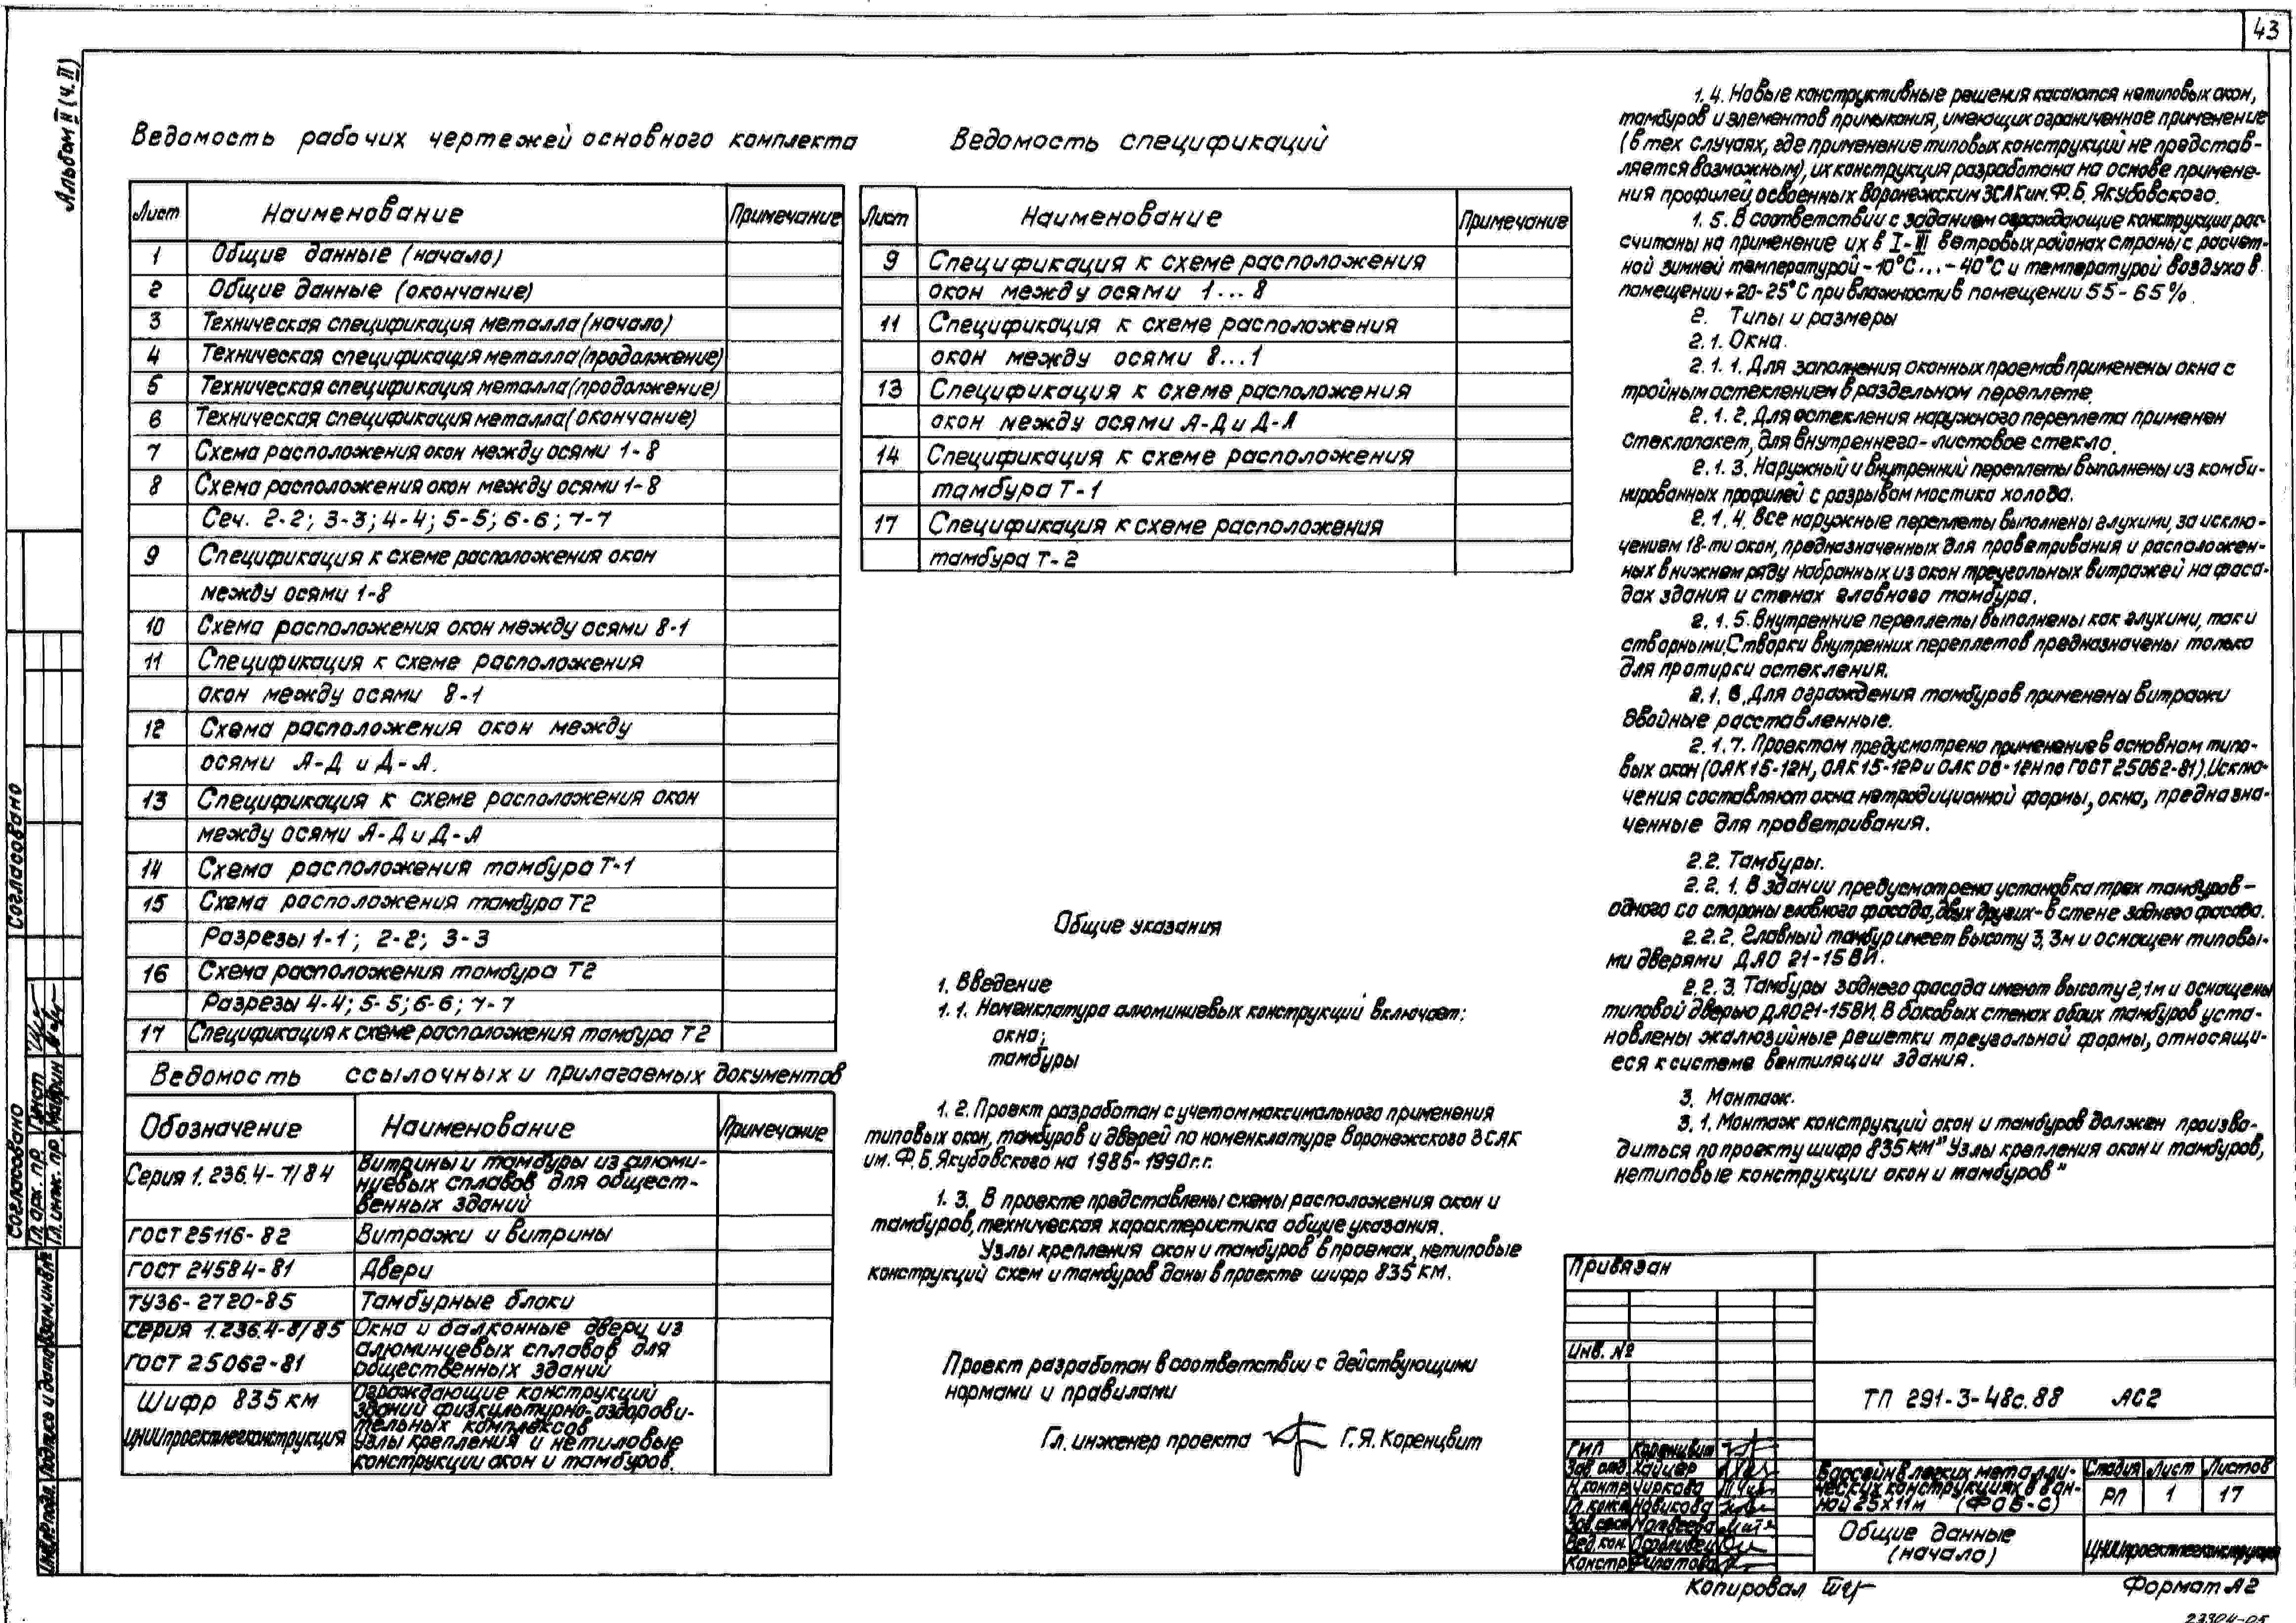 43
Альбом II (ч. II)
Ведомость рабочих чертежей основного комплекта
Лист Наименование Примечание
1 Общие данные (начало)
2 Общие данные (окончание)
3 Техническая спецификация металла (начало)
4 Техническая спецификация металла (продолжение)
5 Техническая спецификация металла (продолжение)
6 Техническая спецификация металла (окончание)
7 Схема расположения окон между осями 1-8
8 Схема расположения окон между осями 1-8
Сеч. 2-2; 3-3; 4-4; 5-5; 6-6; 7-7
9 Спецификация к схеме расположения окон
между осями 1-8
10 Схема расположения окон между осями 8-1
11 Спецификация к схеме расположения
окон между осями 8-1
12 Схема расположения окон между
осями А-Д и Д-А.
13 Спецификация к схеме расположения окон
между осями А-Д и Д-А
14 Схема расположения тамбура Т-1
15 Схема расположения тамбура Т2
Разрезы 1-1; 2-2; 3-3
16 Схема расположения тамбура Т2
Разрезы 4-4; 5-5; 6-6; 7-7
17 Спецификация к схеме расположения тамбура Т2
Ведомость ссылочных и прилагаемых документов
Обозначение Наименование Примечание
Серия 1.236.4-7/84 Витрины и тамбуры из алюми-
ниевых сплавов для общест-
венных зданий
ГОСТ 25116-82 Витражи и витрины
ГОСТ 24584-81 Двери
ТУ36-2720-85 Тамбурные блоки
Серия 1.236.4-8/85 Окна и балконные двери из
алюминиевых сплавов для
ГОСТ 25062-81 общественных зданий
Шифр 835 км Ограждающие конструкций
зданий физкультурно-оздорови-
тельных комплексов
ЦНИИпроектлегконструкция Узлы крепления и нетиповые
конструкции окон и тамбуров.
Ведомость спецификаций
Лист Наименование Примечание
9 Спецификация к схеме расположения
окон между осями 1...8
11 Спецификация к схеме расположения
окон между осями 8...1
13 Спецификация к схеме расположения
окон между осями А-Д и Д-А
14 Спецификация к схеме расположения
тамбура Т-1
17 Спецификация к схеме расположения
тамбура Т-2
Общие указания
1. Введение
1.1. Номенклатура алюминиевых конструкций включает:
окна;
тамбуры
1.2. Проект разработан с учетом максимального применения
типовых окон, тамбуров и дверей по номенклатуре Воронежского ЗСАК
им. Ф.Б. Якубовского на 1985-1990г.г.
1.3. В проекте представлены схемы расположения окон и
тамбуров, техническая характеристика общие указания.
Узлы крепления окон и тамбуров в проемах, нетиповые
конструкций схем и тамбуров даны в проекте шифр 835 км.
Проект разработан в соответствии с действующими
нормами и правилами
Гл. инженер проекта Г.Я. Коренцвит
1.4. Новые конструктивные решения касаются нетиповых окон,
тамбуров и элементов примыкания, имеющих ограниченное применение
(в тех случаях, где применение типовых конструкций не представ-
ляется возможным), их конструкция разработана на основе примене-
ния профилей, освоенных Воронежским ЗСАК им. Ф.Б. Якубовского.
1.5. В соответствии с заданием ограждающие конструкции рас-
считаны на применение их в I-III ветровых районах страны с расчет-
ной зимней температурой -10°С...-40°С и температурой воздуха в
помещении +20-25°С при влажности в помещении 55-65%.
2. Типы и размеры
2.1. Окна.
2.1.1. Для заполнения оконных проемов применены окна с
тройным остеклением в раздельном переплете.
2.1.2. Для остекления наружного переплета применен
стеклопакет, для внутреннего-листовое стекло.
2.1.3. Наружный и внутренний переплеты выполнены из комби-
нированных профилей с разрывом мостика холода.
2.1.4. Все наружные переплеты выполнены глухими, за исклю-
чением 18-ти окон, предназначенных для проветривания и расположен-
ных в нижнем ряду набранных из окон треугольных витражей на фаса-
дах здания и стенах главного тамбура.
2.1.5. Внутренние переплеты выполнены как глухими, так и
створными. Створки внутренних переплетов предназначены только
для протирки остекления.
2.1.6. Для ограждения тамбуров применены витражи
двойные расставленные.
2.1.7. Проектом предусмотрено применение в основном типо-
вых окон (ОАК 15-12Н, ОАК 15-12Р и ОАК 06-12Н по ГОСТ 25062-81). Исклю-
чения составляют окна нетрадиционной формы, окна, предназна-
ченные для проветривания.
2.2. Тамбуры.
2.2.1. В здании предусмотрена установка трех тамбуров-
одного со стороны главного фасада, двух других-в стене заднего фасада.
2.2.2. Главный тамбур имеет высоту 3,3м и оснащен типовы-
ми дверями ДАО 21-15ВИ.
2.2.3. Тамбуры заднего фасада имеют высоту 2,1м и оснащены
типовой дверью ДАО21-15ВИ. В боковых стенах обоих тамбуров уста-
новлены жалюзийные решетки треугольной формы, относящи-
еся к системе вентиляции здания.
3. Монтаж.
3.1. Монтаж конструкций окон и тамбуров должен произво-
диться по проекту шифр 835 км "Узлы крепления окон и тамбуров,
нетиповые конструкции окон и тамбуров"
Привязан
Инв. №
ТП 291-3-48с.88 АС2
ГИП Коренцвит
Зав. отд. Хайцер
Н. контр. Чиркова
Гл. конст. Новикова
Матвеева
Вед. кон.
Констр. Филатова
Бассейн в легких металли-
ческих конструкциях в ван-
ной 25х11м (ФОБ-С)
Стадия Лист Листов
РП 1 17
Общие данные
(начало)
ЦНИИпроектлегконструкция
Копировал
Формат А2
23304-05
Согласовано
Согласовано
Гл. арх. пр.
Гл. инж. пр. Маврин
Взам. инв. №
Подпись и дата
Инв. № подл.